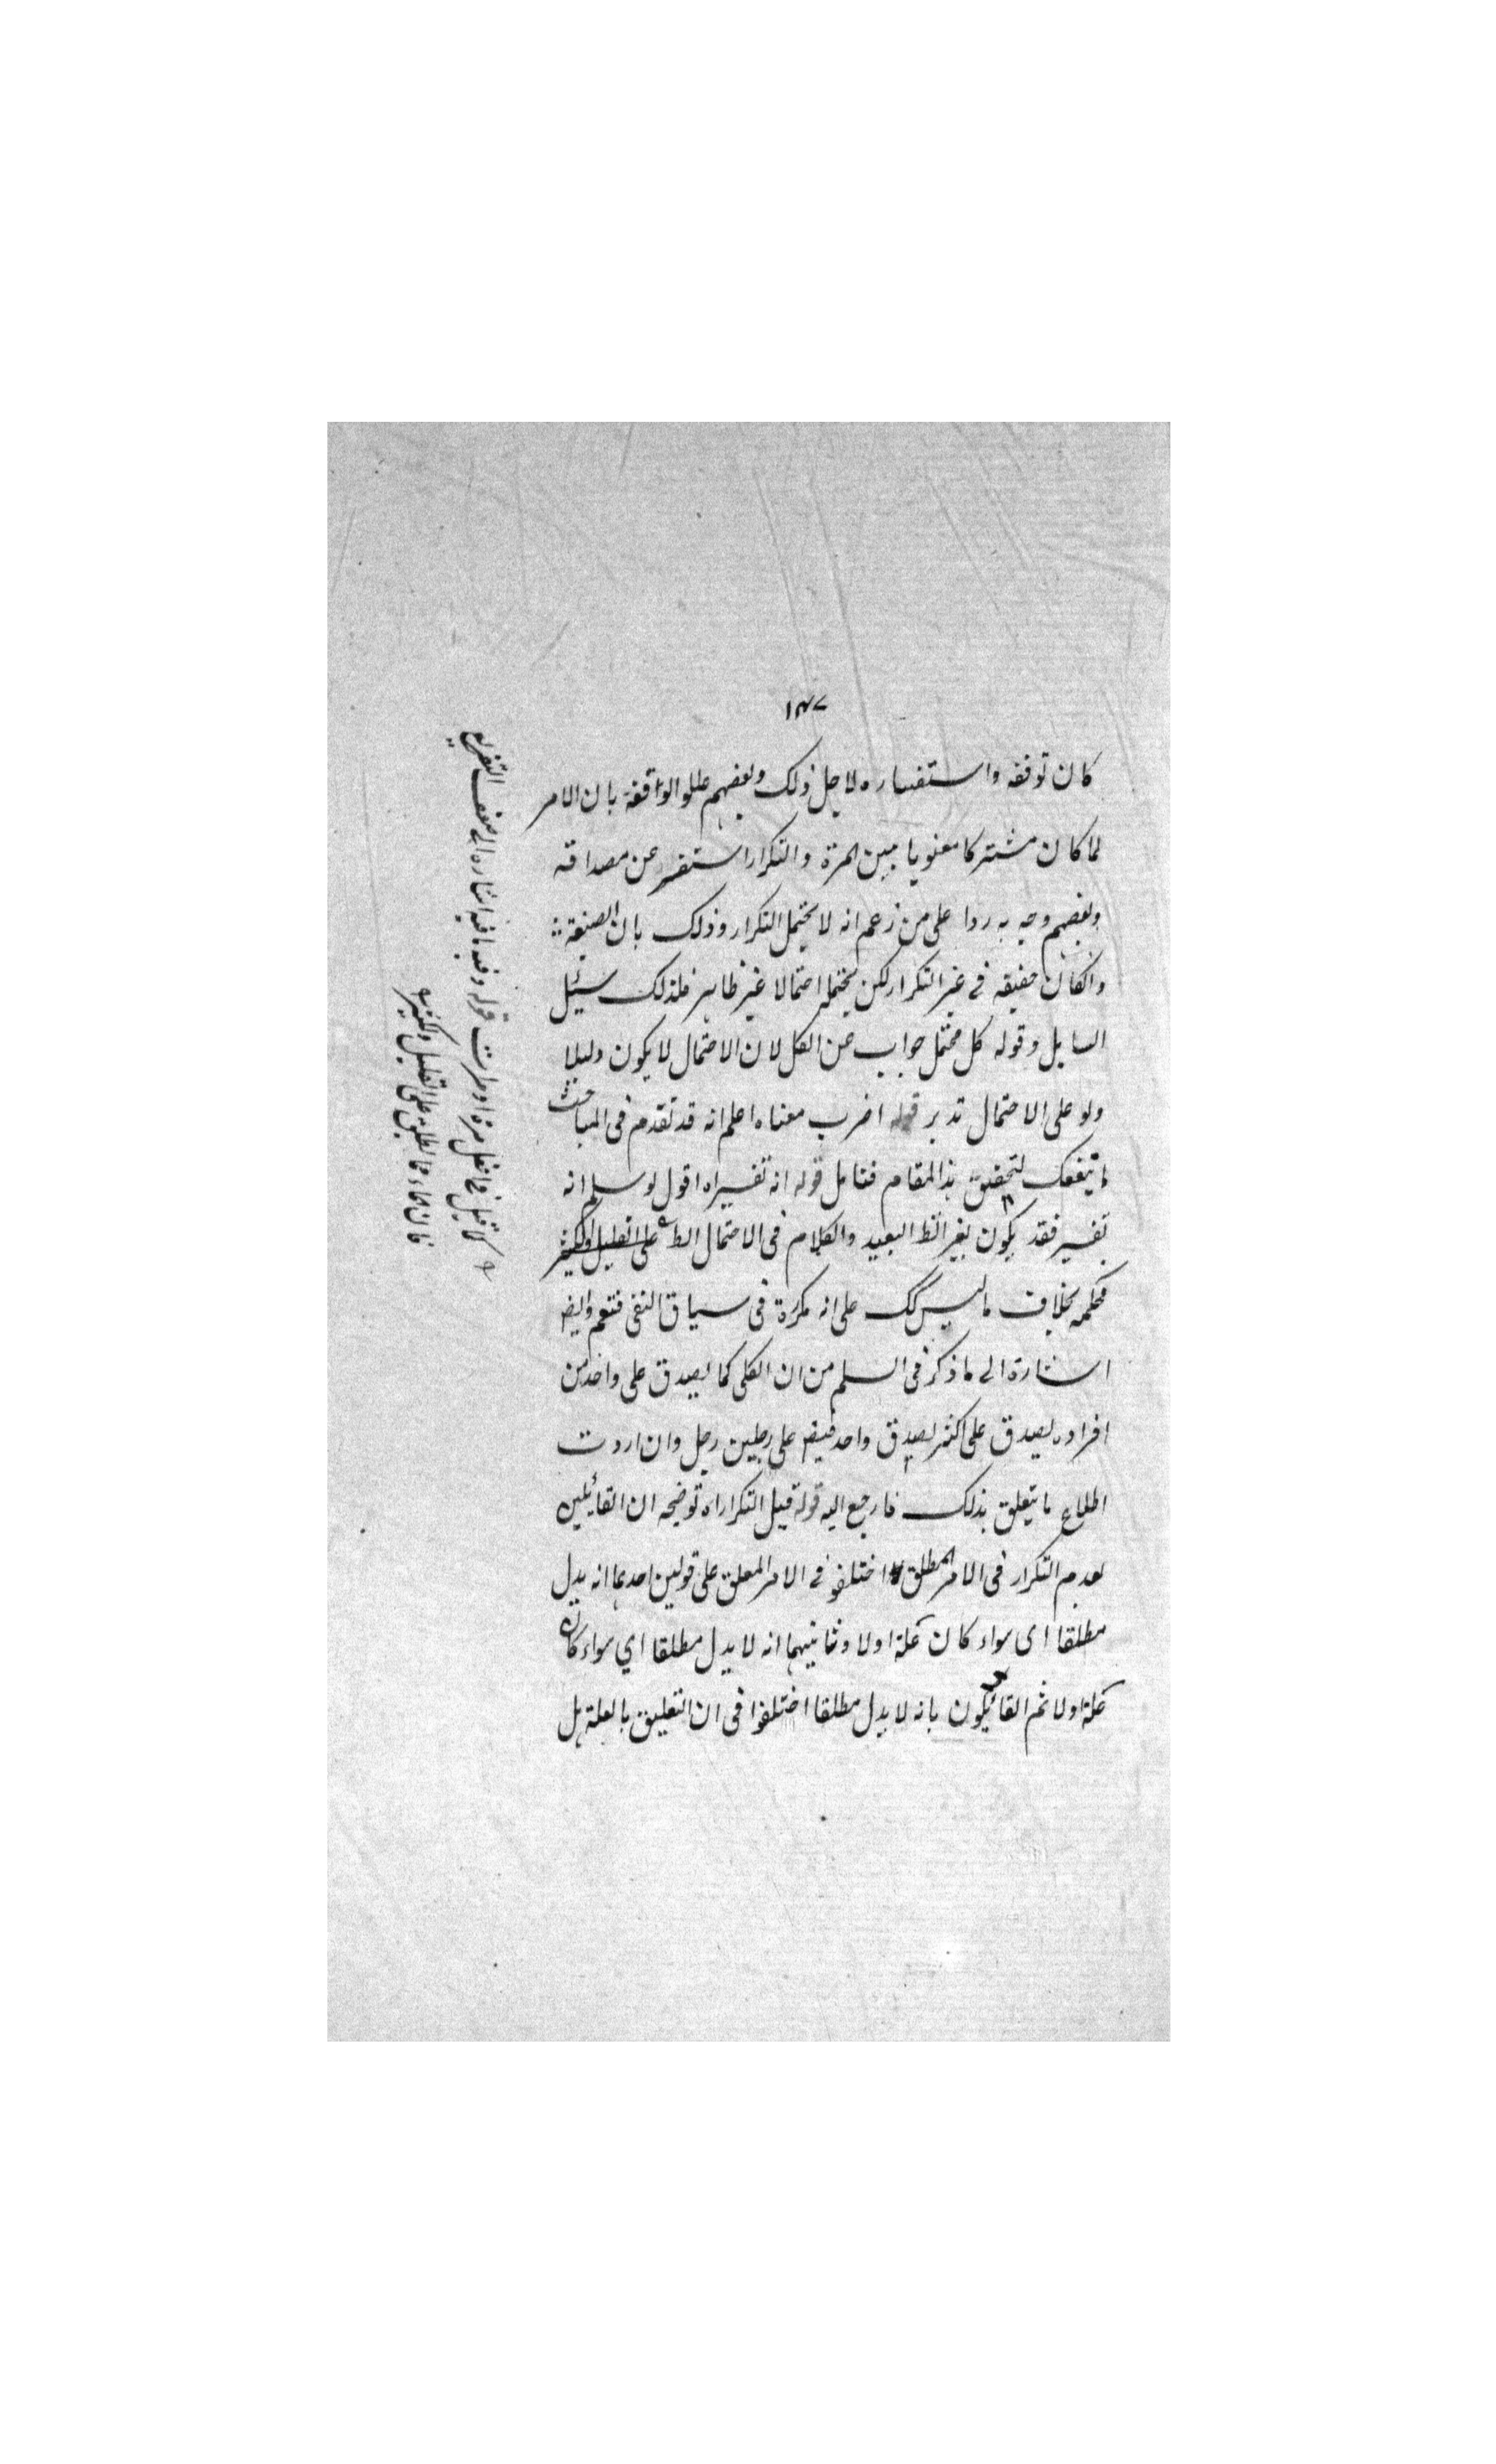 ١٤٧
كان توقفه واستفساره لاجل ذلك وبعضهم عللوا الواقفة بان الامر
لما كان مشتركا معنويا بين المرة والتكرار استفسر عن مصداقه
وبعضهم وجه به ردا على من زعم انه لا يحتمل التكرار وذلك بان الصيغة
وانكان حقيقه في غير التكرار لكن يحتمله احتمالا غير ظاهر فلذلك سئيل
السايل وقوله كل محتمل جواب عن الكل لان الاحتمال لا يكون دليلا
ولو على الاحتمال تدبر قوله اضرب معناه اعلم انه قد تقدم في المباحث
ما ينفعك لتحقيق هذا المقام فتامل قوله انه تفسير اه اقول لو سلم انه
تفسير فقد يكون بغير الظ البعيد والكلام في الاحتمال الظ على القليل والكثير
بخلاف ما ليس كك على انه نكرة في سياق النفي فتعم وايض
اشارة الى ما ذكر في السلم من ان الكلي كما يصدق على واحد من
افراده يصدق على اكثر يصدق واحد فيض على رجلين رجل وان اردت
اطلاع ما يتعلق بذلك فارجع اليه قوله قيل التكرار اه توضيحه ان القائلين
بعدم التكرار في الامر المطلق اختلفوا في الامر المعلق على قولين احدهما انه يدل
مطلقا اى سواء كان علة اولا وثانيهما انه لا يدل مطلقا اي سواء كان
علة اولا ثم القائلون بانه لا يدل مطلقا اختلفوا في ان التعليق بالعلة هل
كما قيل في افعل مرة او مرات قوله وفيه ما فيه اشاره الى ضعف التفريع
على القليل والكثير